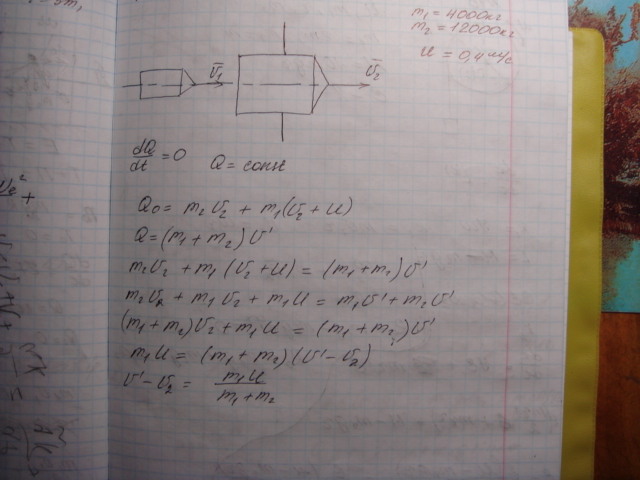 m₁ = 4000кг
m₂ = 12000кг
u = 0,4 м/с
v̄₁
v̄₂
dQ/dt = 0 Q = const
Q₀ = m₂v₂ + m₁(v₂ + u)
Q = (m₁ + m₂) v'
m₂v₂ + m₁ (v₂ + u) = (m₁ + m₂) v'
m₂v₂ + m₁ v₂ + m₁u = m₁v' + m₂v'
(m₁ + m₂)v₂ + m₁u = (m₁ + m₂)v'
m₁u = (m₁ + m₂)(v' - v₂)
v' - v₂ = m₁u / m₁ + m₂